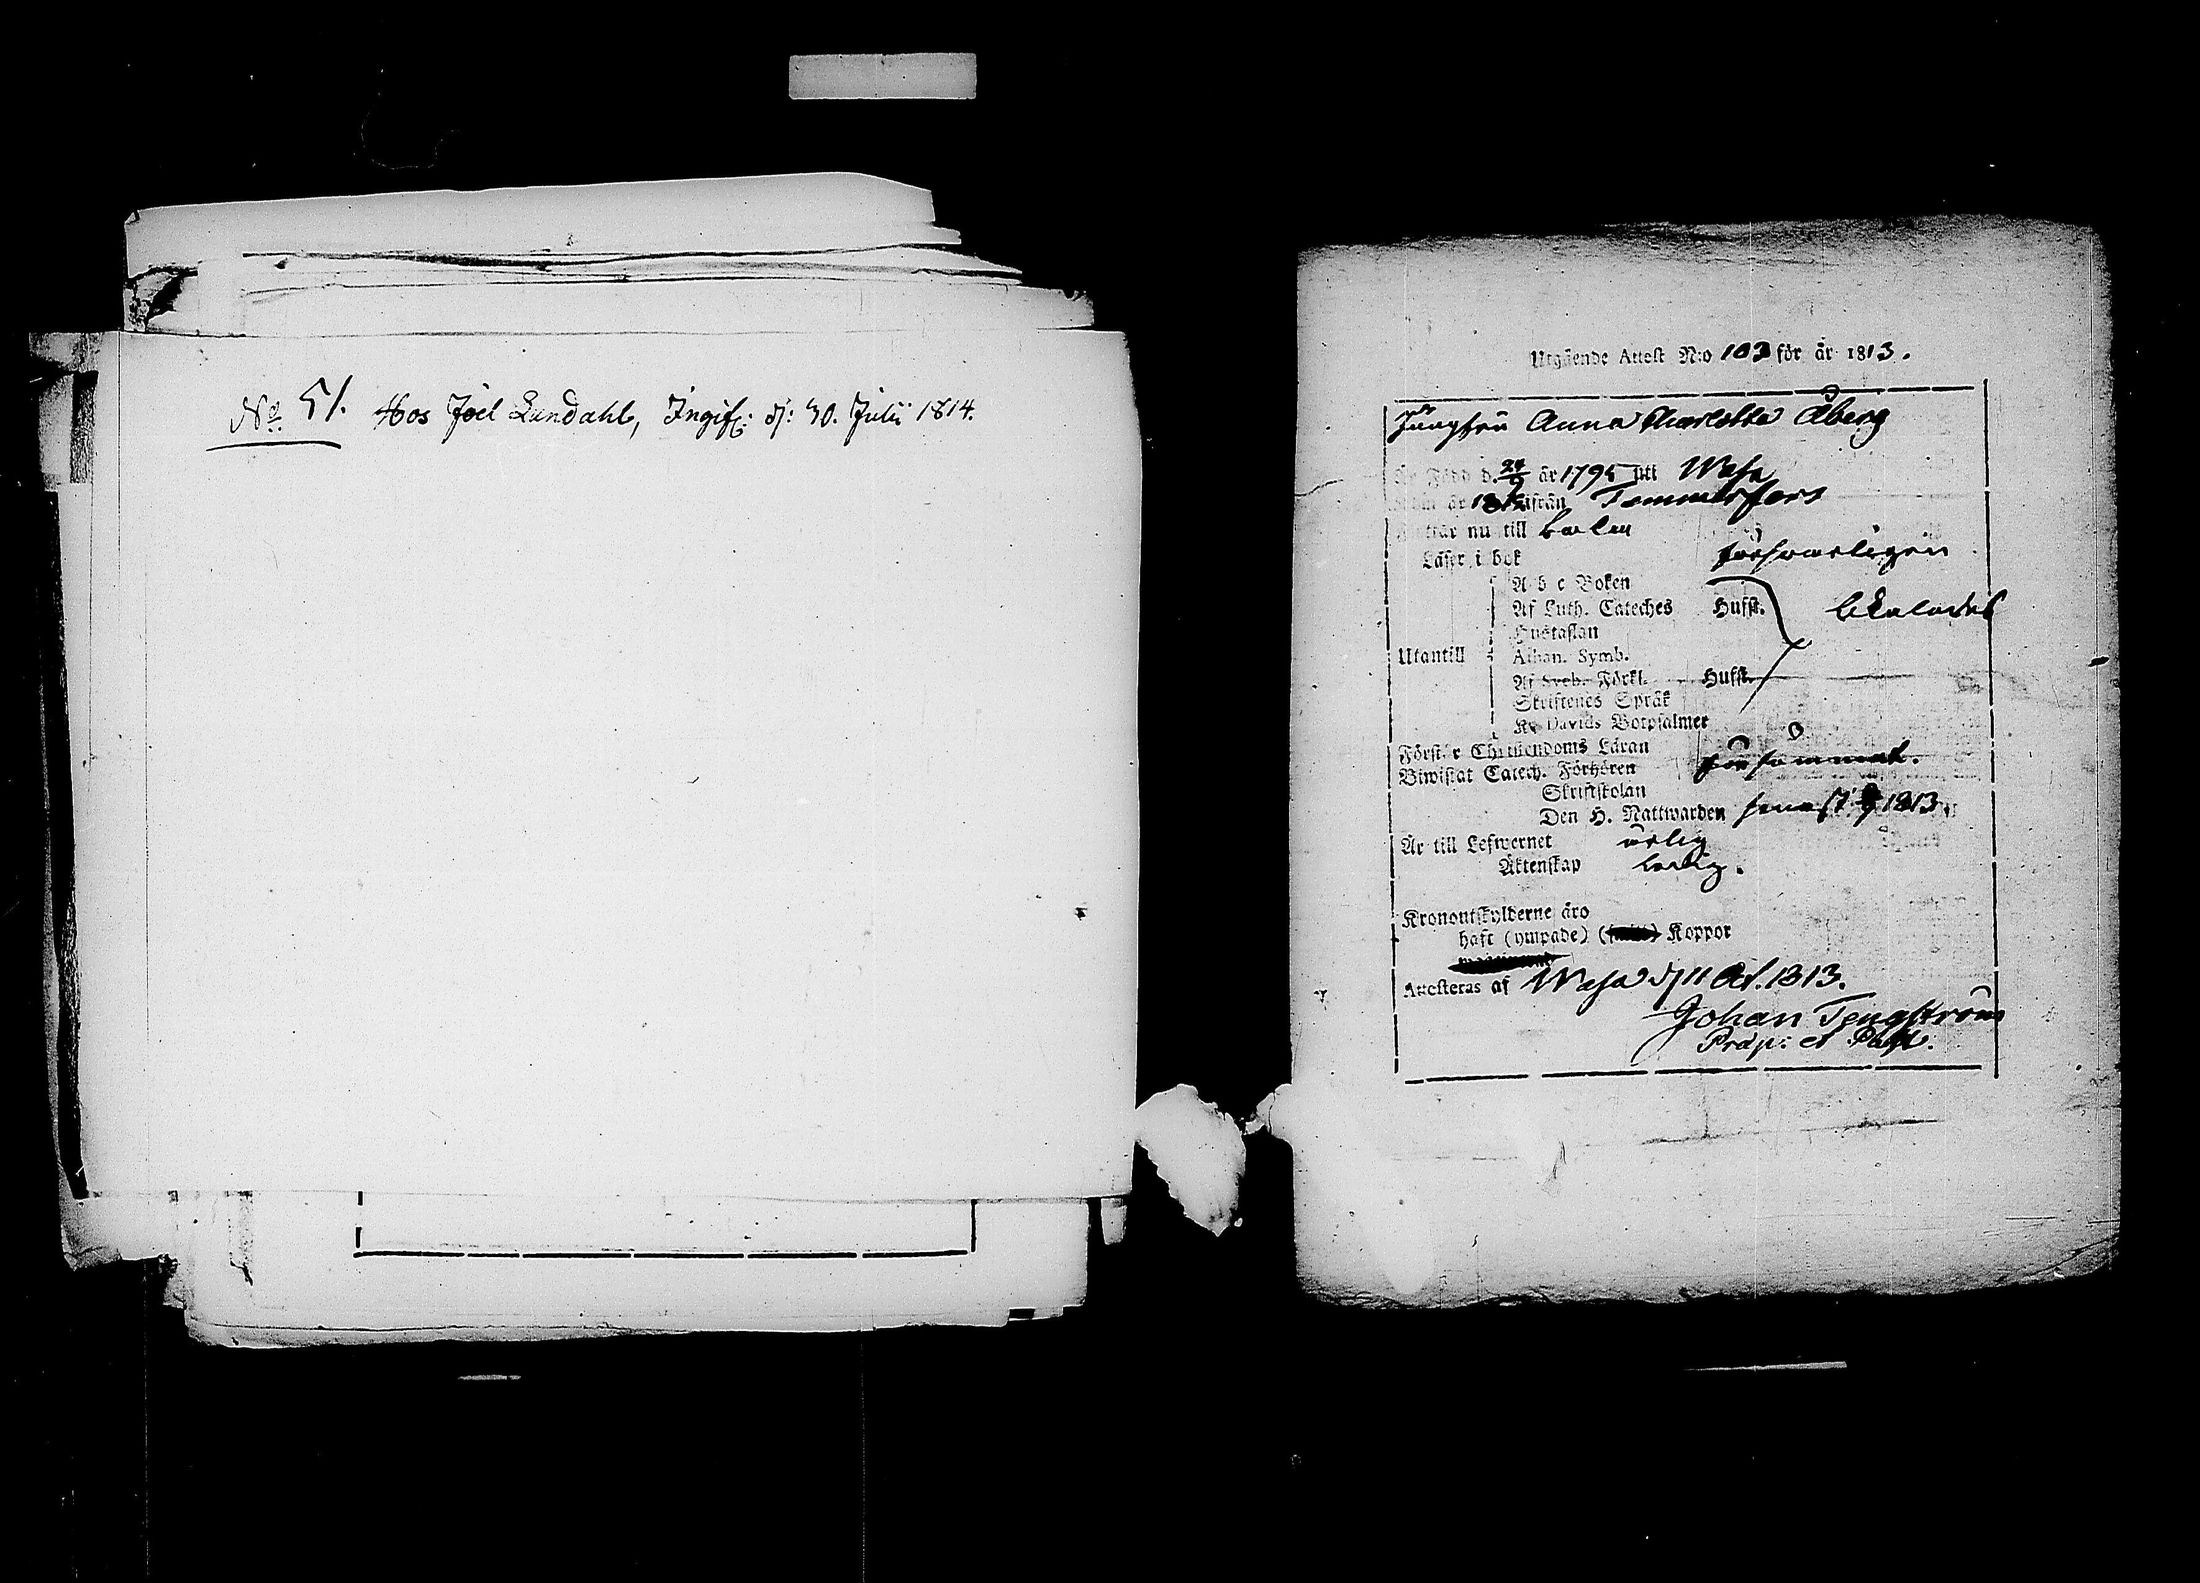 No 51. Hos Joel Lundahl, Ingif: d: 30. Julii 1814.
Utgående Attest N:o 103 för år 1813.
Jungfru Anna Charlotta Åberg
Är Född d. 24/9 år 1795 uti Wasa
Kom år 1812 ifrån Tammerfors
Flyttar nu till
Läser i bok försvarligen
A b c Boken
Af Luth. Cateches Hufst.
Hustaflan
Utantill Athan. Symb.
Af Sveb. Förkl. Hufst.
Skriftenes Språk
K. Davids Botpsalmer
Förstår Christendoms Läran
Biwistat Catech. Förhören försummat.
Skriftskolan
Den H. Nattwarden senast 1813
Är till Lefwernet ärlig
Äktenskap ledig.
Kronoutskylderne äro
haft (ympade) Koppor
Attesteras af Wasa d 11 Oct. 1813.
Johan Tengström
Præp: et Past.